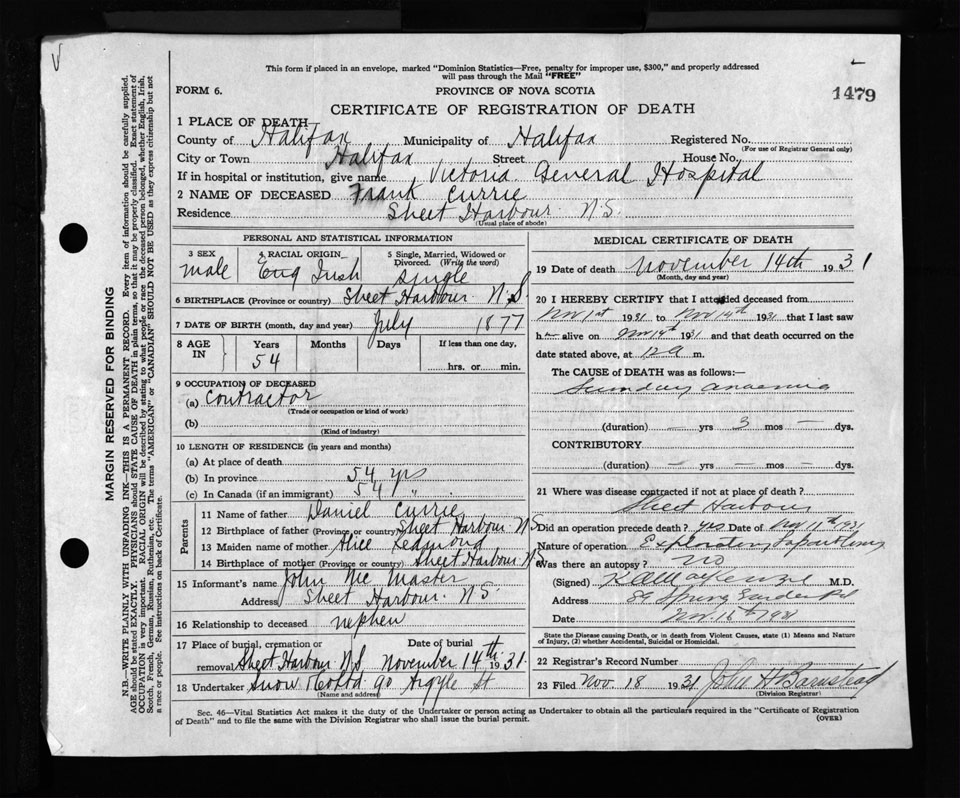 This form if placed in an envelope, marked "Dominion Statistics—Free, penalty for improper use, $300," and properly addressed
will pass through the Mail "FREE"
FORM 6.
PROVINCE OF NOVA SCOTIA
1479
CERTIFICATE OF REGISTRATION OF DEATH
1 PLACE OF DEATH
County of Halifax Municipality of Halifax Registered No.
(For use of Registrar General only)
City or Town Halifax Street House No.
If in hospital or institution, give name Victoria General Hospital
2 NAME OF DECEASED Frank Currie
Residence Sheet Harbour N.S.
(Usual place of abode)
PERSONAL AND STATISTICAL INFORMATION
3 SEX male
4 RACIAL ORIGIN Eng Irish
5 Single, Married, Widowed or Divorced. (Write the word) single
6 BIRTHPLACE (Province or country) Sheet Harbour N.S
7 DATE OF BIRTH (month, day and year) July 1877
8 AGE IN Years Months Days If less than one day,
54 hrs. or min.
9 OCCUPATION OF DECEASED
(a) Contractor
(Trade or occupation or kind of work)
(b)
(Kind of industry)
10 LENGTH OF RESIDENCE (in years and months)
(a) At place of death
(b) In province 54 yrs
(c) In Canada (if an immigrant) 54 "
Parents
11 Name of father Daniel Currie
12 Birthplace of father (Province or country) Sheet Harbour N.S
13 Maiden name of mother Alice Redmond
14 Birthplace of mother (Province or country) Sheet Harbour N.S
15 Informant's name John Mc Master
Address Sheet Harbour N.S.
16 Relationship to deceased nephew
17 Place of burial, cremation or removal Sheet Harbour N.S Date of burial November 14th 1931
18 Undertaker Snow & Co Ltd 90 Argyle St
(Name and address)
MEDICAL CERTIFICATE OF DEATH
19 Date of death November 14th 1931
(Month, day and year)
20 I HEREBY CERTIFY that I attended deceased from
Nov 1st 1931 to Nov 14th 1931 that I last saw
h alive on Nov 14th 1931 and that death occurred on the
date stated above, at 12 a m.
The CAUSE of DEATH was as follows:—
anaemia
(duration) — yrs 3 mos — dys.
CONTRIBUTORY
(duration) — yrs — mos — dys.
21 Where was disease contracted if not at place of death?
Sheet Harbour
Did an operation precede death? yes Date of Nov 11th 1931
Nature of operation Exploratory
Was there an autopsy? no
(Signed) MacKenzie M.D.
Address 89 Spring Garden Rd
Date Nov. 1931
State the Disease causing Death, or in death from Violent Causes, state (1) Means and Nature
of Injury, (2) whether Accidental, Suicidal or Homicidal.
22 Registrar's Record Number
23 Filed Nov. 18 1931 John H Barnstead
(Division Registrar)
Sec. 46—Vital Statistics Act makes it the duty of the Undertaker or person acting as Undertaker to obtain all the particulars required in the "Certificate of Registration
of Death" and to file the same with the Division Registrar who shall issue the burial permit.
(OVER)
MARGIN RESERVED FOR BINDING
N.B.—WRITE PLAINLY WITH UNFADING INK—THIS IS A PERMANENT RECORD. Every item of information should be carefully supplied.
AGE should be stated EXACTLY. PHYSICIANS should STATE CAUSE OF DEATH in plain terms, so that it may be properly classified. Exact statement of
OCCUPATION is very important. RACIAL ORIGIN will be described by stating to what people or race the deceased person belonged, whether English, Irish,
Scotch, French, German, Russian, Ruthenian, etc. The terms "AMERICAN" or "CANADIAN" SHOULD NOT BE USED as they express citizenship but not
a race or people. See instructions on back of Certificate.